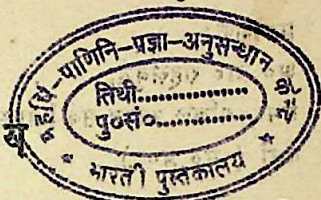 महर्षि-पाणिनि-प्रज्ञा-अनुसन्धान केन्द्र
तिथी..................
पु०सं०...............
* भारती पुस्तकालय *